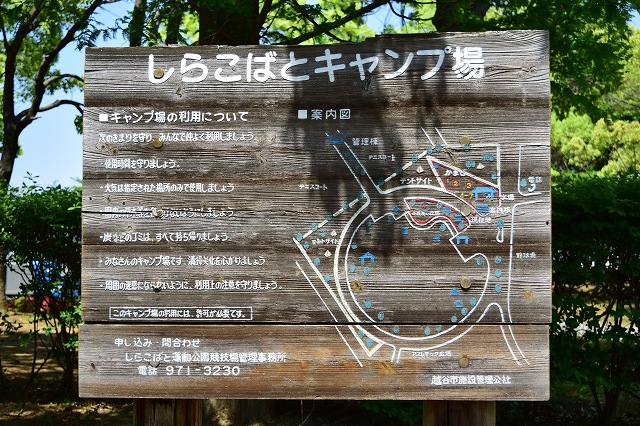 しらこばとキャンプ場
■キャンプ場の利用について
次のきまりを守り、みんなで仲よく利用しましょう。
・使用時間を守りましょう。
・火気は指定された場所のみで使用しましょう
・炭などのゴミは、すべて持ち帰りましょう
・みなさんのキャンプ場です 清掃美化を心がけましょう
・周囲の迷惑にならないように、利用上の注意を守りましょう。
このキャンプ場の利用には、許可が必要です。
■案内図
管理棟
テニスコート
テニスコート
テントサイト
かまど
電話
水道
野球場
テントサイト
アスレチック広場
申し込み・問合わせ
しらこばと運動公園競技場管理事務所
電話 971-3230
越谷市施設管理公社